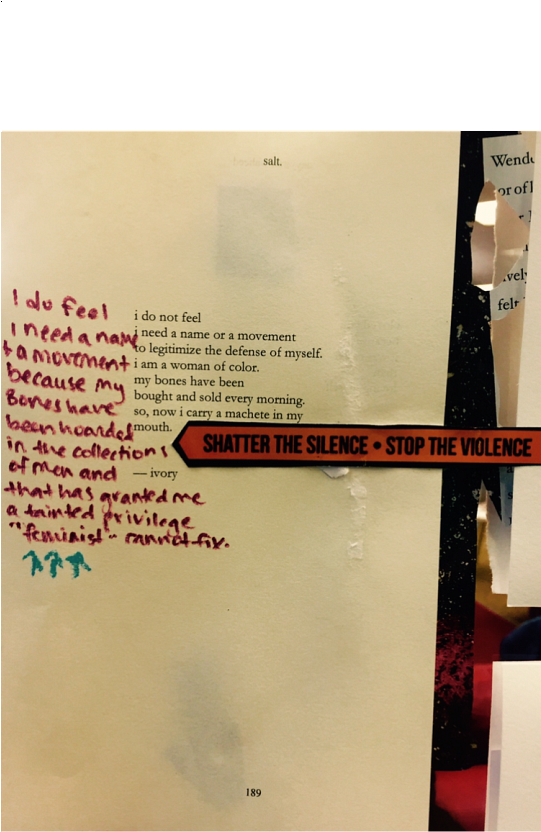 salt.
Wende
or of l
vely
felt
I do feel
I need a name
to a movement
because my
Bones have
been hoarded
in the collections
of men and
that has granted me
a tainted privilege
"feminist" cannot fix.
i do not feel
i need a name or a movement
to legitimize the defense of myself.
i am a woman of color.
my bones have been
bought and sold every morning.
so, now i carry a machete in my
mouth.
SHATTER THE SILENCE • STOP THE VIOLENCE
— ivory
189